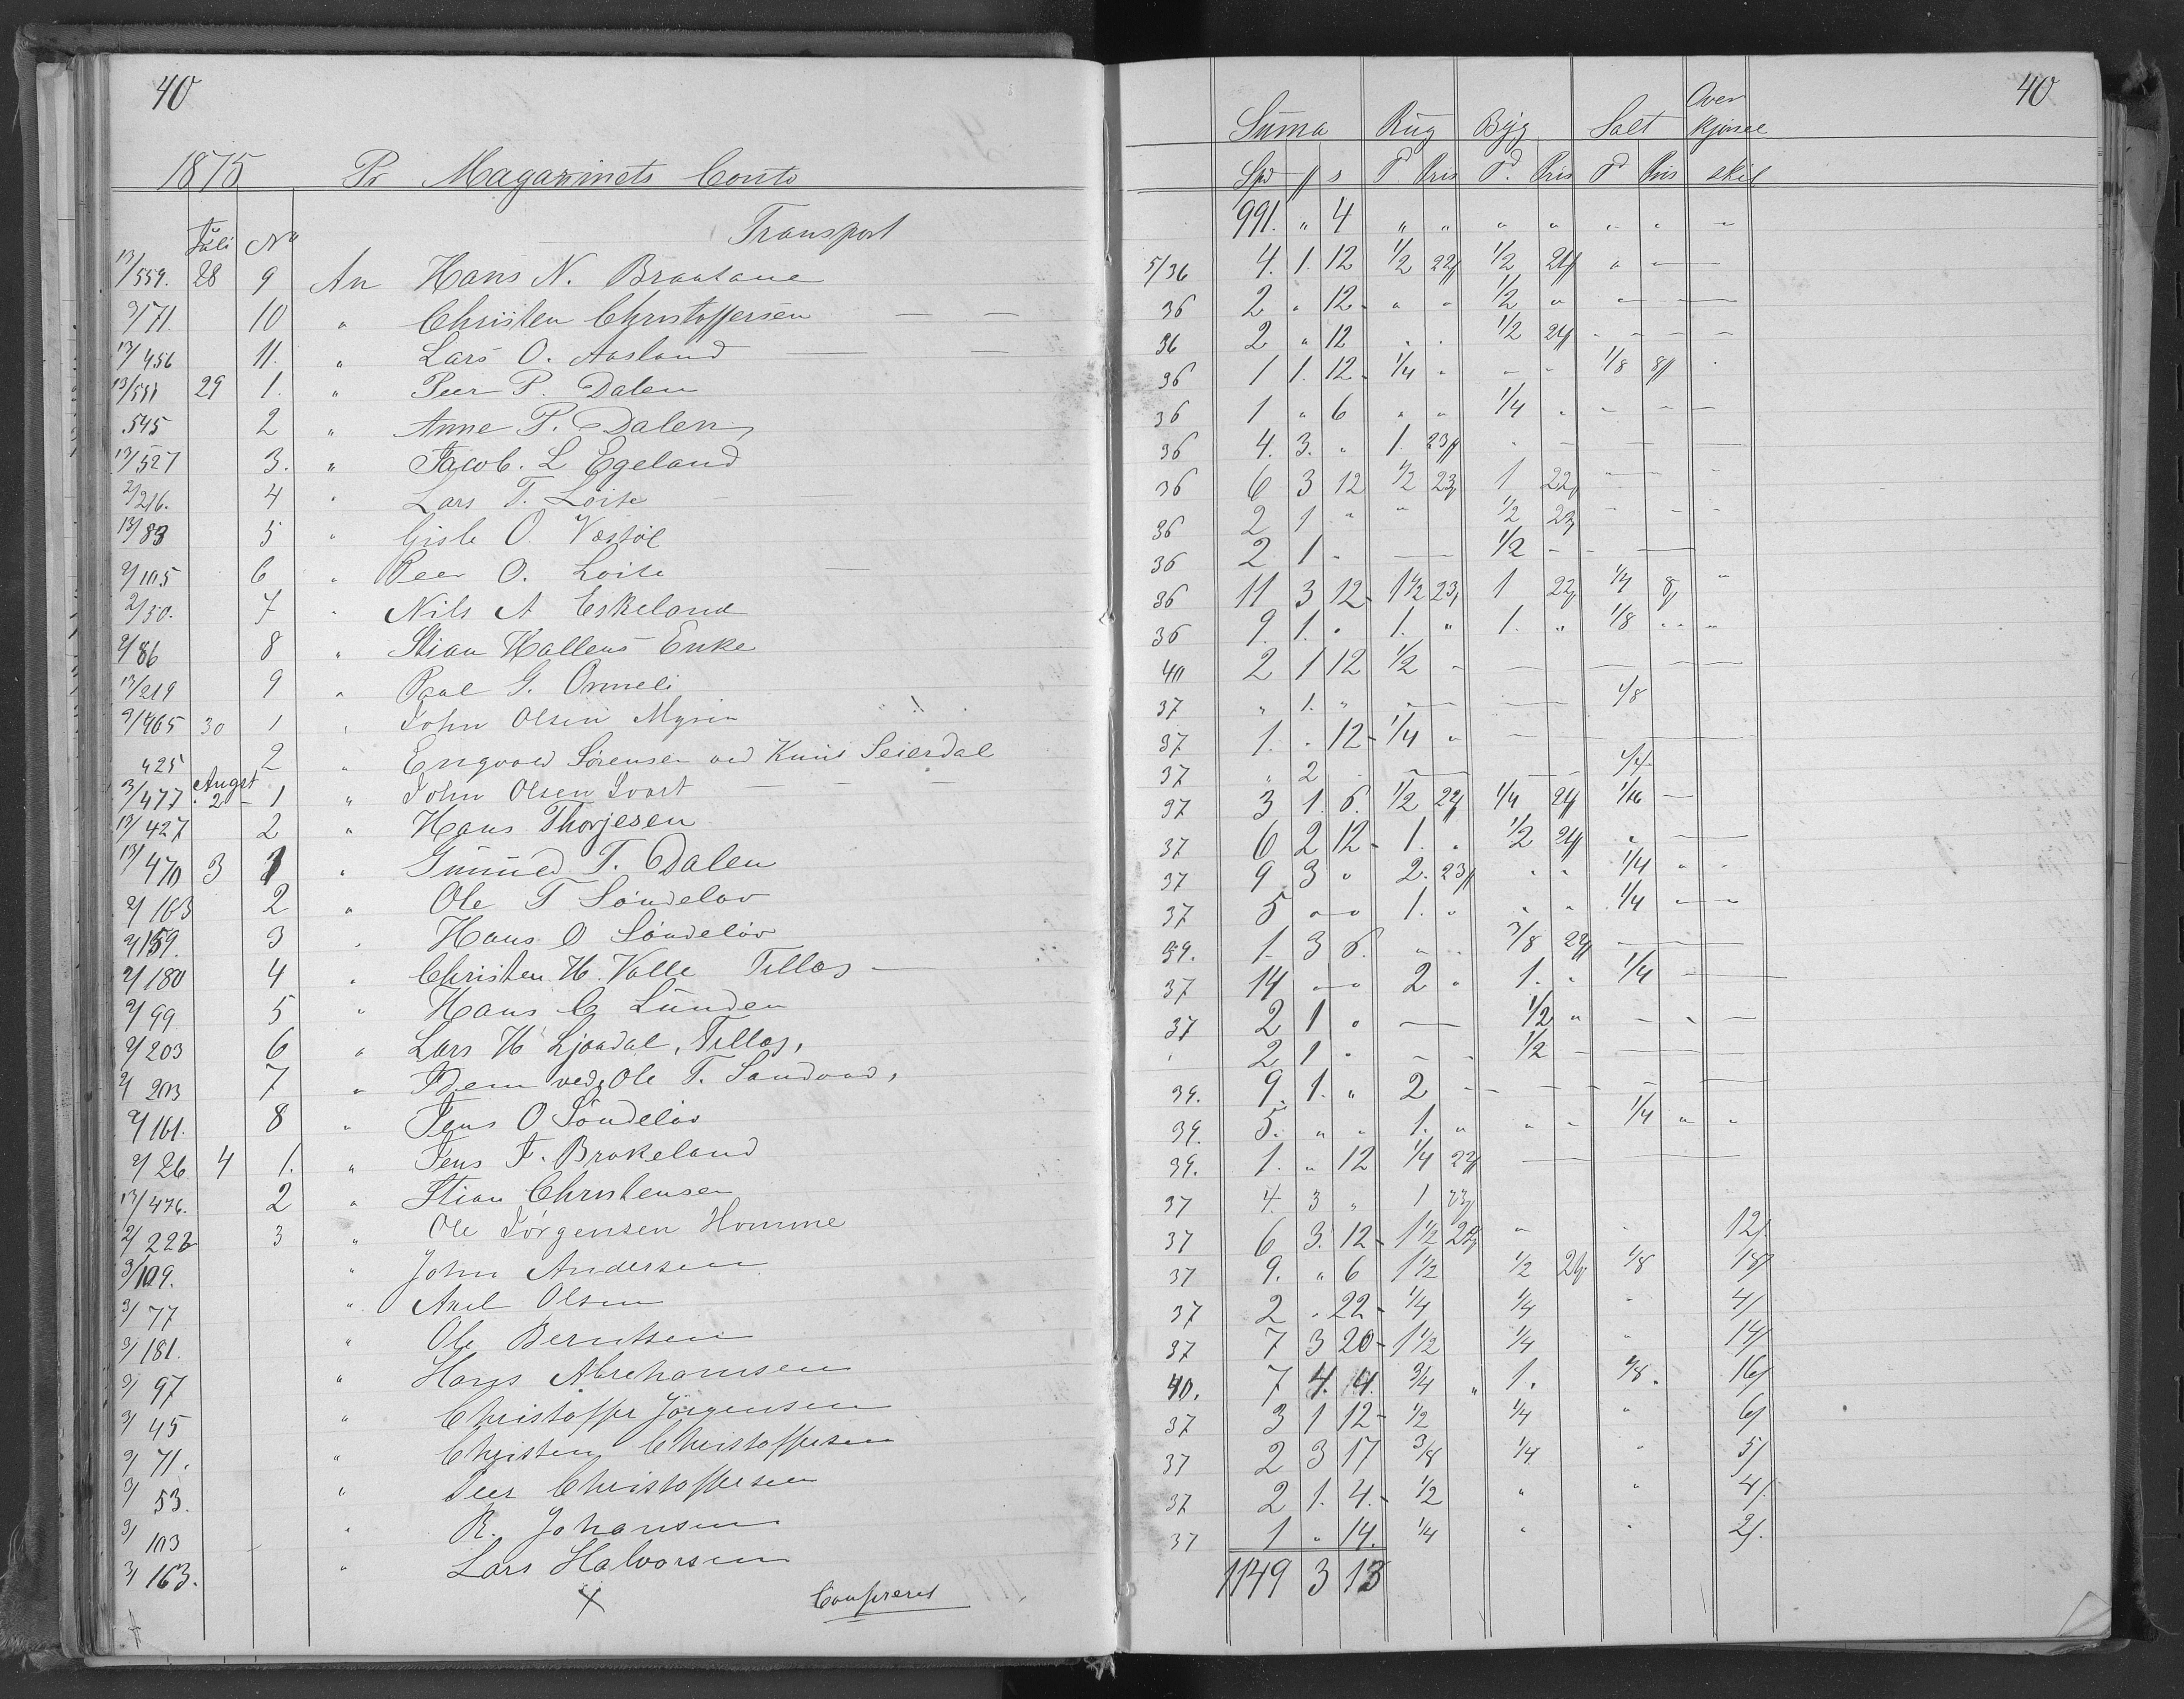 40
1875 Pr Magazinets Conto
Juli No Transport
13/559. 28 9 An Hans N. Braatane
3/71. 10 " Christen Christoffersen — —
13/456 11. " Lars O. Aasland — —
13/551 29 1. " Peer P. Dalen
545 2 " Anne P. Dalen
13/527 3. " Jacob. L Egeland
2/216. 4 " Lars T. Loite —
13/83 5 " Gisle O. Vestøl
2/105 6 " Peer O. Loite —
2/50. 7 " Nils A Eskeland
2/86 8 " Stian Hallens Enke
13/219 9 " Paal G. Ormeli
9/465 30 1 " John Olsen Myren
425 2 " Engvald Sørensen ved Knud Seierdal
Augst
3/477 2 1 " John Olsen Svart — — —
13/427 2 " Hans Thorjesen
13/470 3 1 " Gunuld T. Dalen
2/163 2 " Ole T Søndeløv
2/159. 3 " Hans O Søndeløv
2/180 4 " Christen H. Valle Tellos —
2/99 5 " Hans C Lunden
2/203 6 " Lars H Ljosdal, Tellos,
2/203 7 " Dem ved, Ole T. Sandvad,
2/161. 8 " Jens O Søndeløv
2/26 4 1. " Jens F. Brokeland
13/476. 2 " Stian Christensen
2/222 3 " Ole Jørgensen Homme
3/109. " John Andersen
3/77 " Axel Olsen
3/181. " Ole Berntsen
3/97 " Hans Abrehamsen
3/45 " Christoffer Jörgensen
3/71. " Christen Christoffersen
3/53. " Peer Christoffersen
3/103 " R. Johansen
3/163. " Lars Halvorsen
x Confereret
40
Suma Rug Byg Salt Over Kjørsel
Spd ƒ s T Pris T. Pris T Pris skil
991. " 4 " " " " " " —
5/36 4. 1. 12 1/2 22ƒ 1/2 21ƒ " —
36 2 " 12 - " " 1/2 " " —
36 2 " 12 . . 1/2 24ƒ - - - -
36 1 1. 12 - 1/4 " - - 1/8 8ƒ .
36 1 " 6 " " 1/4 " - - —
36 4. 3. " 1. 23ƒ - — — —
36 6 3 12 1/2 23ƒ 1 22ƒ " — -
36 2 1 " " 1/2 23ƒ - - -
36 2 1 - — 1/2 - - —
36 11 3 12 - 1 1/2 23ƒ 1 22ƒ 1/4 8ƒ "
36 9. 1. . 1. " 1. " 1/8 . . "
40 2 1 12 1/2 - — — — —
37 " 1. " — — 1/8
37 1. " 12 - 1/4 " — —
37 " 2 — — 1/4
37 3 1. 6. 1/2 22ƒ 1/4 21ƒ 1/16 —
37 6 2 12 - 1. . 1/2 21ƒ " —
37 9 3 " 2. 23ƒ " " 1/4 " -
37 5 " " 1. " " " 1/4 - -
39. 1. 3 6. " . 3/8 22ƒ —
37 14 " " 2 " 1. " 1/4 —
37 2 1 " — 1/2 " - " —
" 2 1 " - - 1/2 - —
39. 9. 1. " 2 - — - — —
39. 5. " " 1. " " - 1/4 " "
39. 1. " 12 1/4 22ƒ — —
37 4. 3 " 1 23ƒ
37 6 3. 12 - 1 1/2 22ƒ " " 12ƒ
37 9. " 6 1 1/2 1/2 21ƒ 1/8 18ƒ
37 2 " 22 - 1/4 1/4 " 4ƒ
37 7 3 20 - 1 1/2 1/4 " 14ƒ
40. 7 4. 4. 3/4 " 1. 1/8. 16ƒ
37 3 1 12 - 1/2 1/4 " 6ƒ
37 2 3 17 3/8 1/4 " 5ƒ
37 2 1. 4. - 1/2 " " 4ƒ
37 1 " 14. 1/4 " " 2ƒ.
1149 3 13